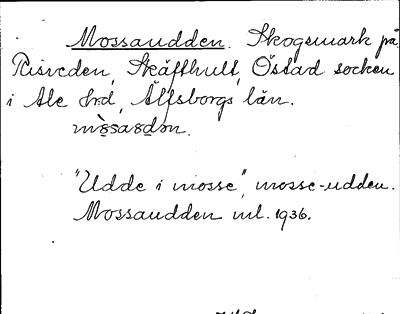 Mossaudden. Skogsmark på
Risveden, Skäffhult, Östad socken
i Ale hrd, Älfsborgs län.
"Udde i mosse", mosse-udden.
Mossaudden ml. 1936.